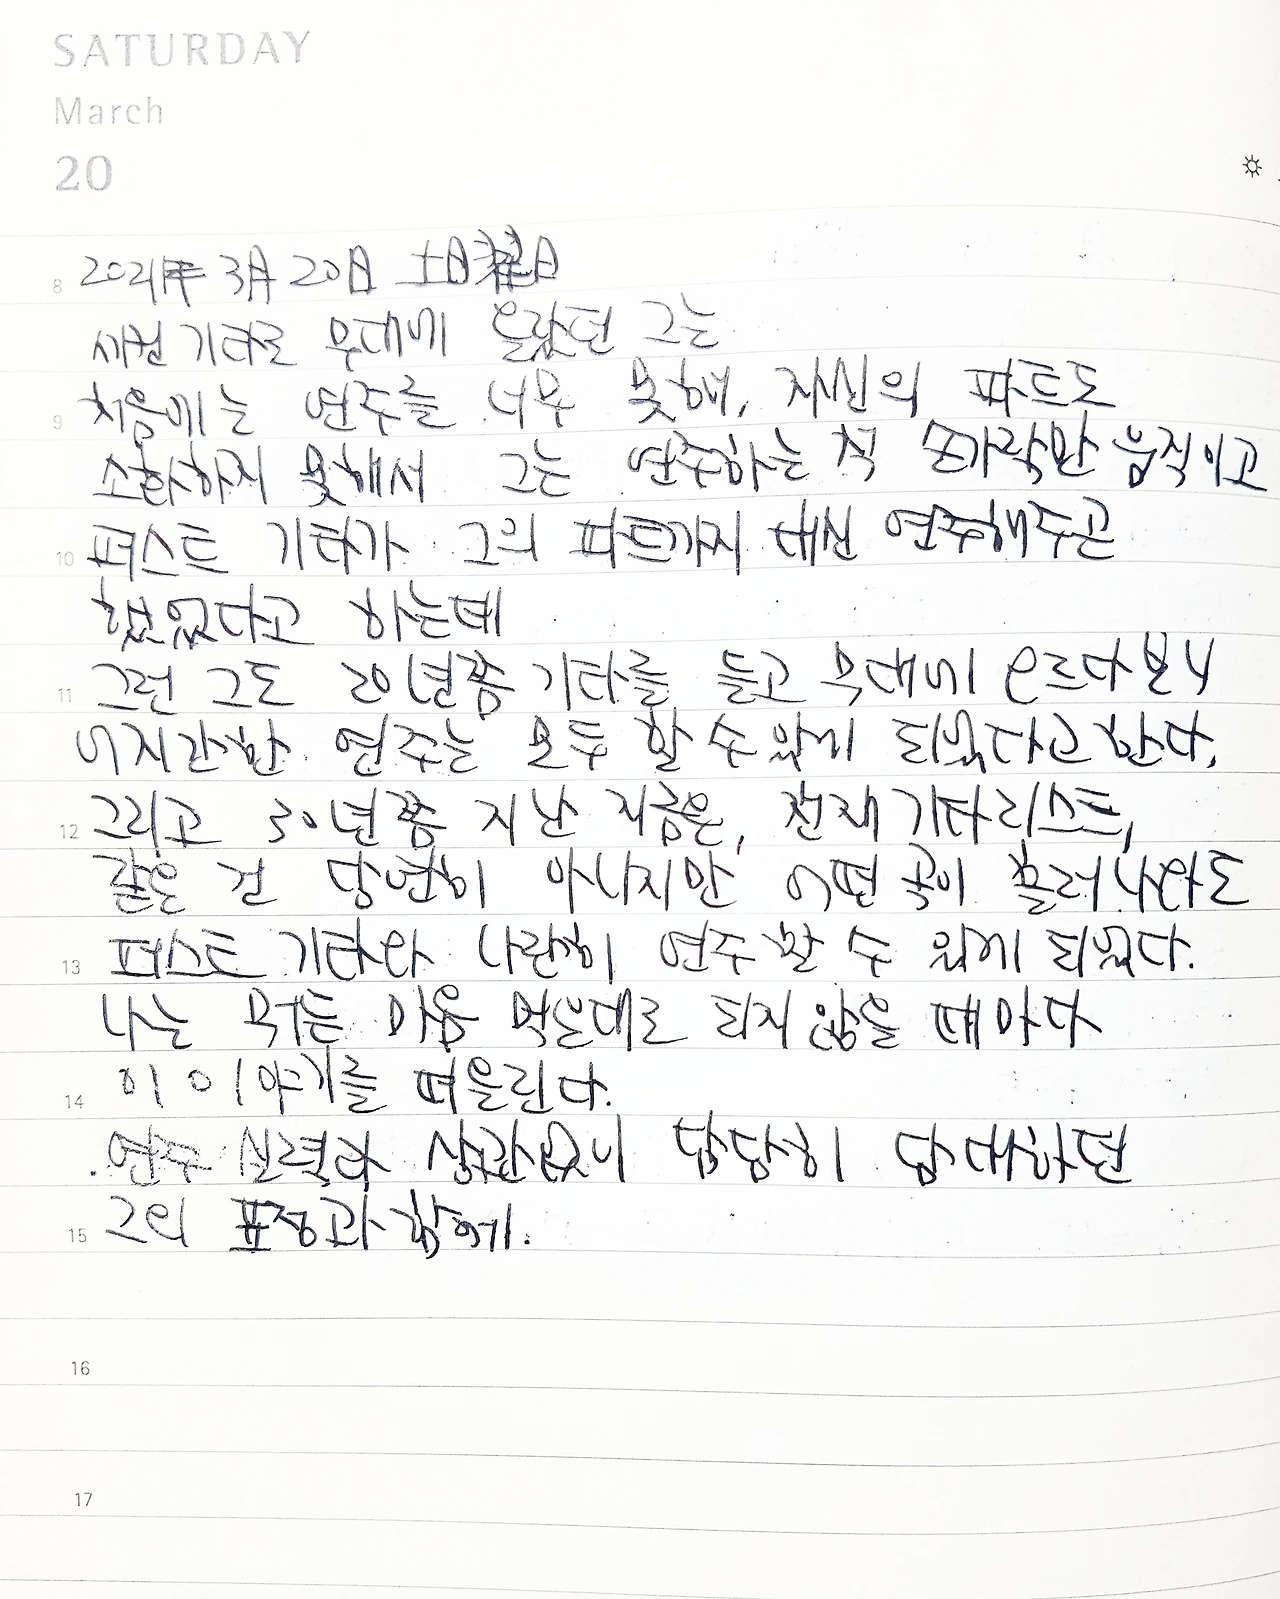 SATURDAY
March
20
8 2021年 3月 20日 土曜日
세컨 기타로 무대에 올랐던 그는
9 처음에는 연주를 너무 못해, 자신의 파트도
소화하지 못해서 그는 연주하는 척 손가락만 움직이고
10 퍼스트 기타가 그의 파트까지 대신 연주해주곤
했었다고 하는데
11 그런 그도 20년쯤 기타를 들고 무대에 오르다보니
어지간한 연주는 모두 할 수 있게 되었다고 한다.
12 그리고 30년쯤 지난 지금은, 천재 기타리스트,
같은 건 당연히 아니지만 어떤 곡이 흘러나와도
13 퍼스트 기타와 나란히 연주할 수 있게 되었다.
나는 무어든 마음 먹은대로 되지 않을 때마다
14 이 이야기를 떠올린다.
연주 실력과 상관없이 담담히 답대하던
15 그의 표정과 함께.
16
17